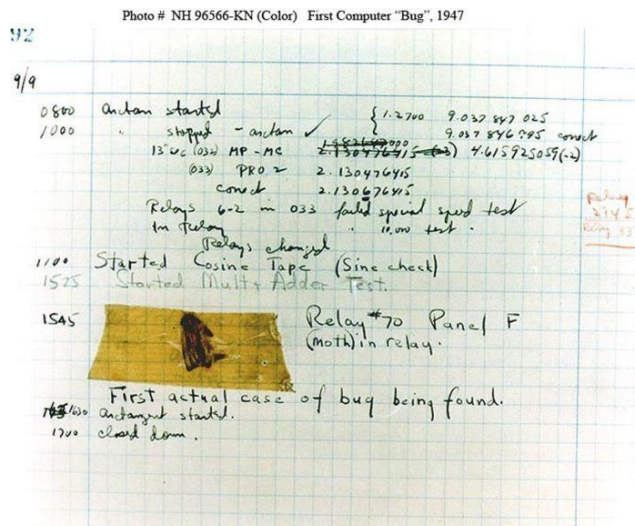 Photo # NH 96566-KN (Color) First Computer “Bug”, 1947
92
9/9
0800 Antan started
1000 " stopped - antan ✓ { 1.2700 9.037 847 025
9.037 846 995 conect
13"uc (032) MP - MC 2.130476415 (-3) 4.615925059(-2)
(033) PRO 2 2.130476415
conect 2.130676415
Relays 6-2 in 033 failed special speed test
In Relay " 10.000 test.
Relays changed
Relay
1100 Started Cosine Tape (Sine check)
1525 Started Mult + Adder Test.
1545 Relay #70 Panel F
(moth) in relay.
First actual case of bug being found.
1630 antangent started.
1700 closed down.